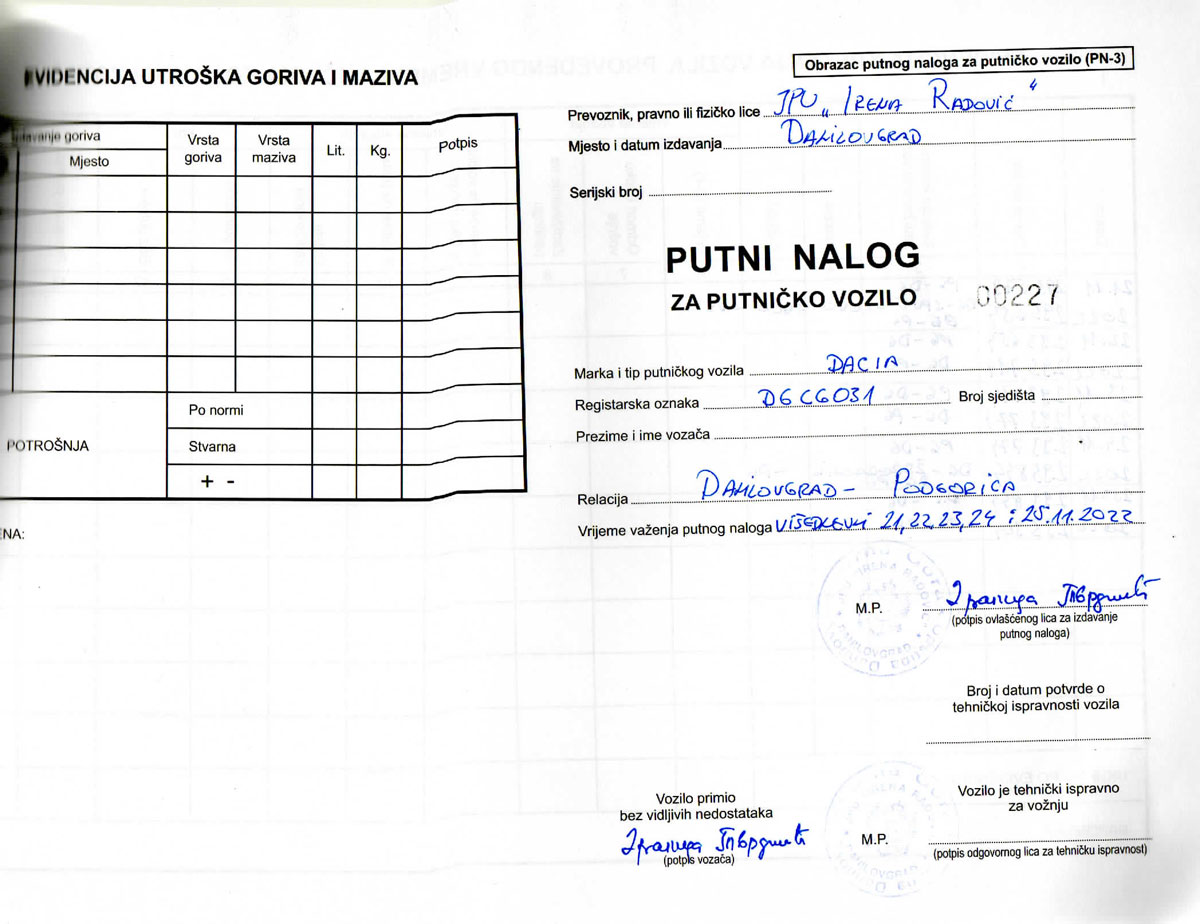 EVIDENCIJA UTROŠKA GORIVA I MAZIVA
goriva
Mjesto
Vrsta goriva
Vrsta maziva
Lit.
Kg.
Potpis
POTROŠNJA
Po normi
Stvarna
+ -
NA:
Obrazac putnog naloga za putničko vozilo (PN-3)
Prevoznik, pravno ili fizičko lice JPU „IRENA RADOVIĆ“
Mjesto i datum izdavanja DANILOVGRAD
Serijski broj
PUTNI NALOG
ZA PUTNIČKO VOZILO 00227
Marka i tip putničkog vozila DACIA
Registarska oznaka DGCG031 Broj sjedišta
Prezime i ime vozača
Relacija DANILOVGRAD - PODGORICA
Vrijeme važenja putnog naloga VIŠEDNEVNI 21,22,23,24 i 25.11.2022
M.P.
(potpis ovlašćenog lica za izdavanje
putnog naloga)
Broj i datum potvrde o
tehničkoj ispravnosti vozila
Vozilo primio
bez vidljivih nedostataka
(potpis vozača)
Vozilo je tehnički ispravno
za vožnju
M.P.
(potpis odgovornog lica za tehničku ispravnost)